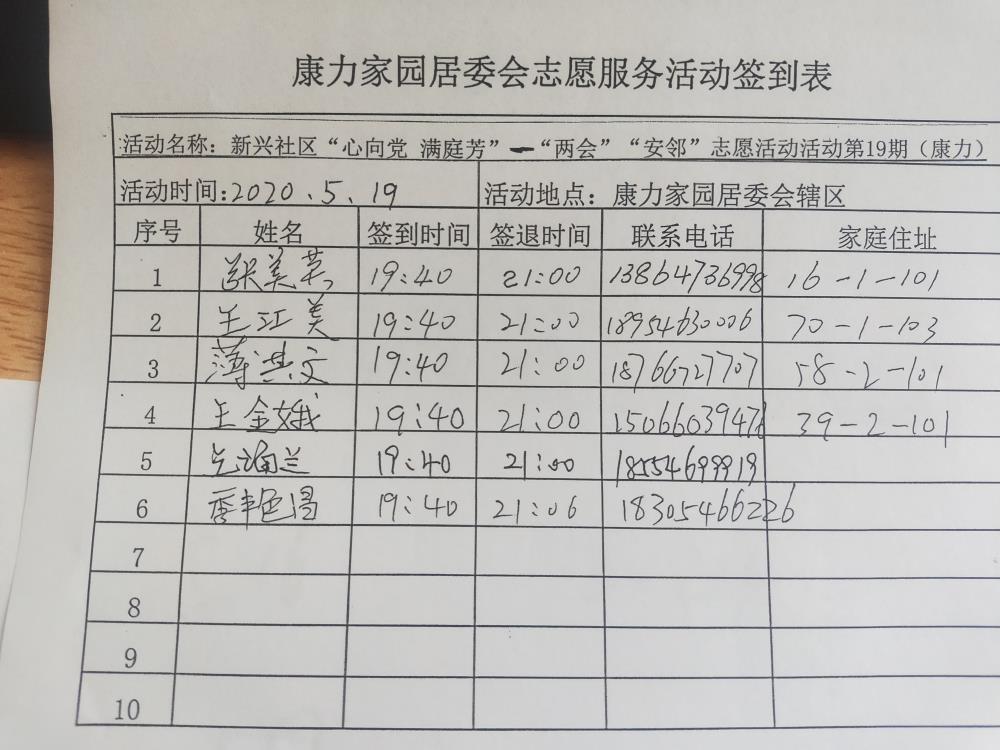 康力家园居委会志愿服务活动签到表
活动名称：新兴社区“心向党 满庭芳”—“两会”“安邻”志愿活动活动第19期（康力）
活动时间:2020.5.19 活动地点：康力家园居委会辖区
序号 姓名 签到时间 签退时间 联系电话 家庭住址
1 张美英 19:40 21:00 13864736998 16-1-101
2 王江美 19:40 21:00 18954630006 70-1-103
3 薄洪文 19:40 21:00 18766727707 58-2-101
4 王金娥 19:40 21:00 39-2-101
5 19:40 21:00 18554699919
6 19:40 21:06 18305466226
7
8
9
10